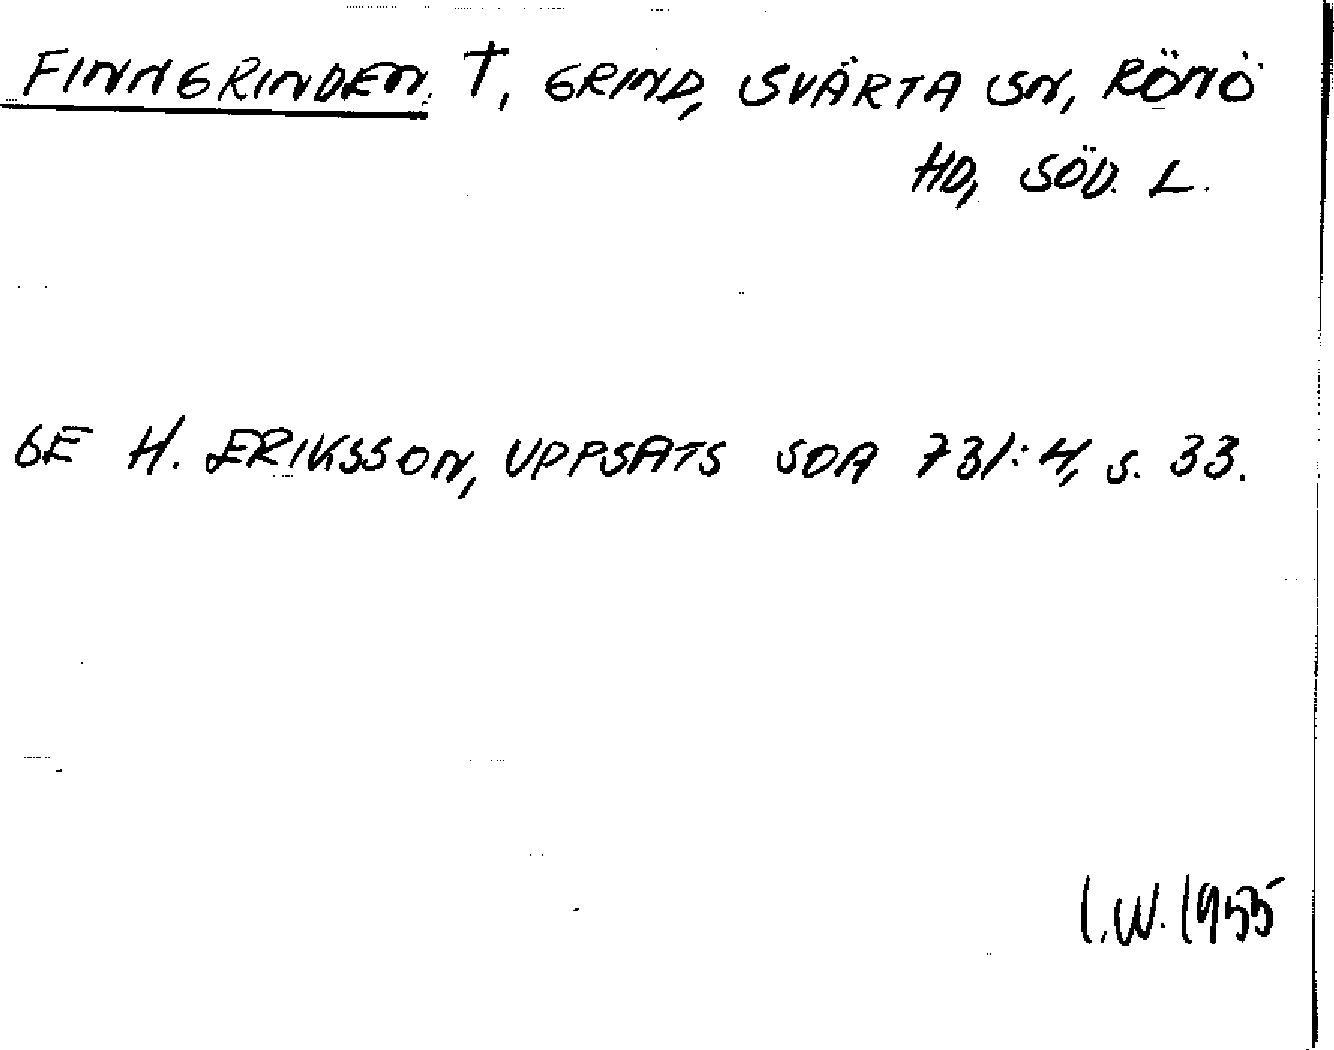 FINNGRINDEN, T, GRIND, SVÄRTA SN, RÖNÖ
HD, SÖD. L.
SE H. ERIKSSON, UPPSATS SOA 731:4, S. 33.
I.W. 1955